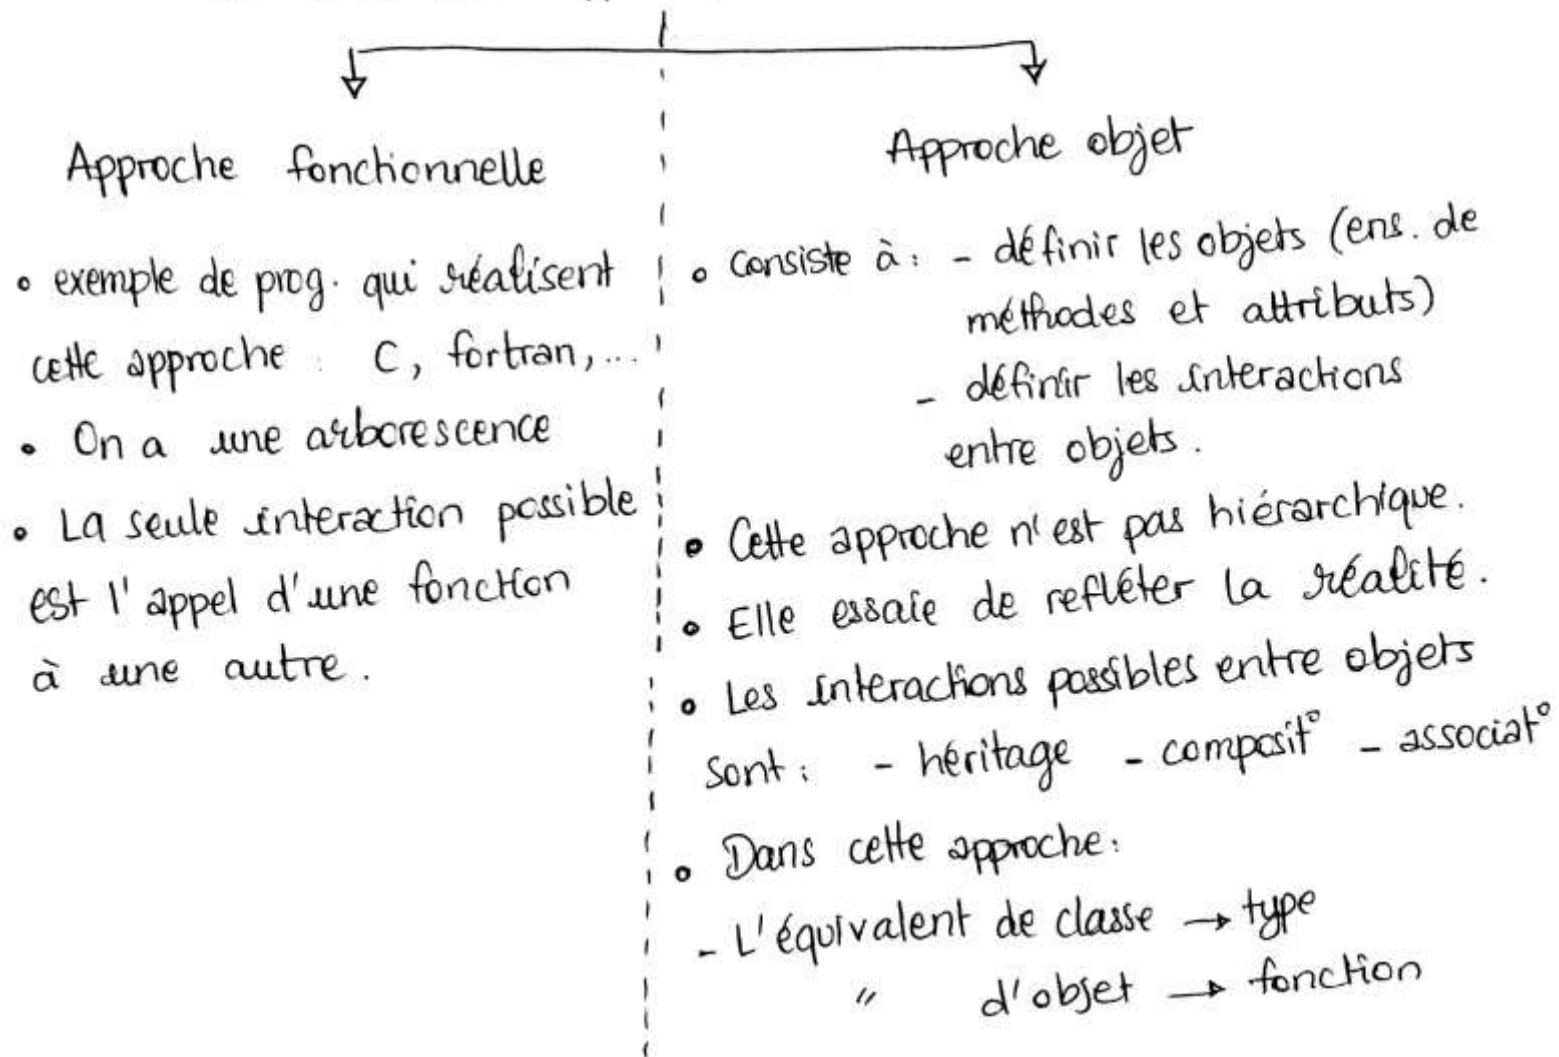 Approche fonctionnelle
• exemple de prog. qui réalisent
cette approche : C, fortran,...
• On a une arborescence
• La seule interaction possible
est l'appel d'une fonction
à une autre.
Approche objet
• Consiste à : - définir les objets (ens. de
méthodes et attributs)
- définir les interactions
entre objets.
• Cette approche n'est pas hiérarchique.
• Elle essaie de refléter la réalité.
• Les interactions possibles entre objets
sont : - héritage - composit° - associat°
• Dans cette approche :
- L'équivalent de classe → type
" d'objet → fonction